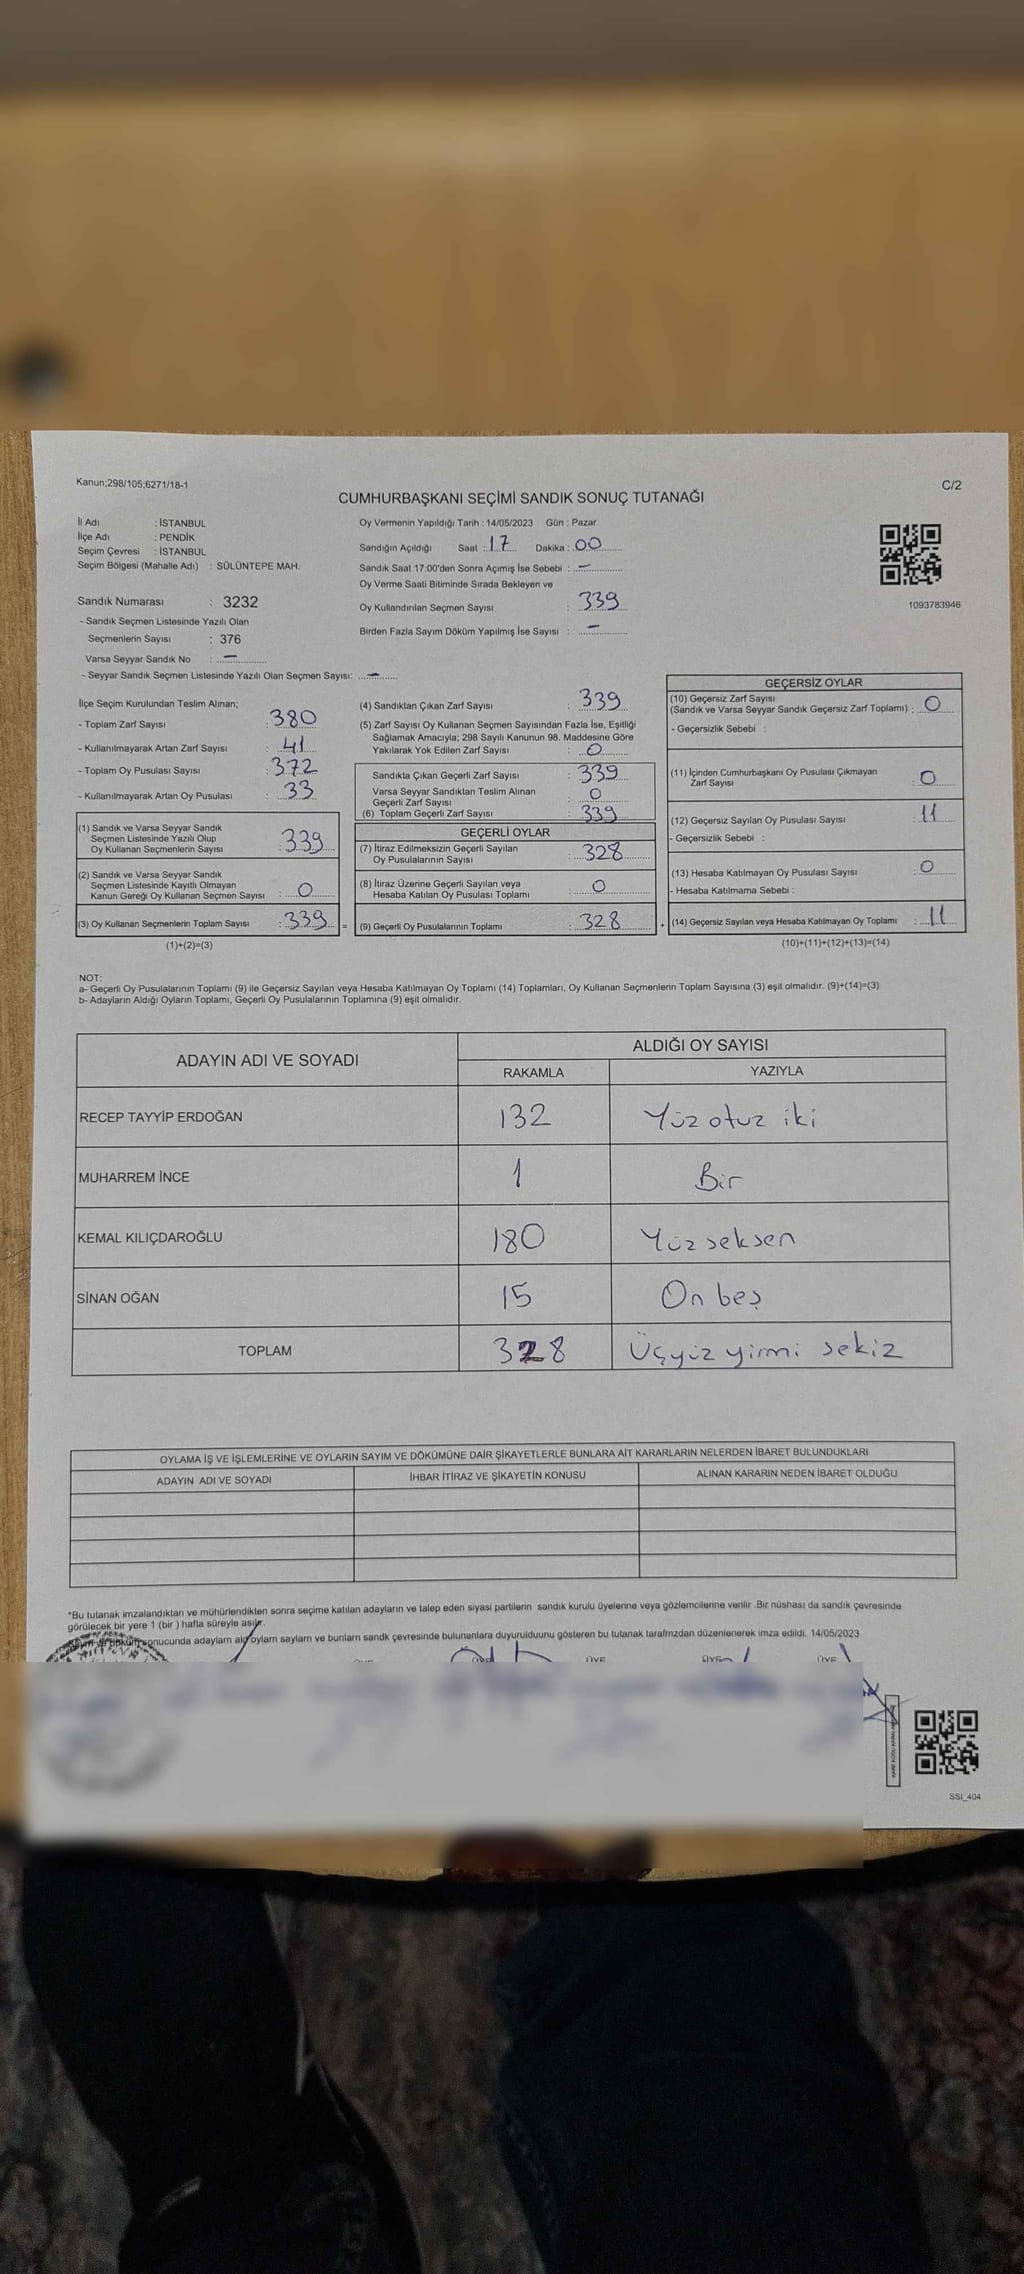 Kanun;298/105;6271/18-1
C/2
CUMHURBAŞKANI SEÇİMİ SANDIK SONUÇ TUTANAĞI
İl Adı : İSTANBUL
İlçe Adı : PENDİK
Seçim Çevresi : İSTANBUL
Seçim Bölgesi (Mahalle Adı) : SÜLÜNTEPE MAH.
Sandık Numarası : 3232
- Sandık Seçmen Listesinde Yazılı Olan
Seçmenlerin Sayısı : 376
Varsa Seyyar Sandık No : —
- Seyyar Sandık Seçmen Listesinde Yazılı Olan Seçmen Sayısı: —
Oy Vermenin Yapıldığı Tarih : 14/05/2023 Gün : Pazar
Sandığın Açıldığı Saat : 17 Dakika : 00
Sandık Saat 17:00'den Sonra Açımış İse Sebebi : —
Oy Verme Saati Bitiminde Sırada Bekleyen ve
Oy Kullandırılan Seçmen Sayısı : 339
Birden Fazla Sayım Döküm Yapılmış İse Sayısı : —
1093783946
İlçe Seçim Kurulundan Teslim Alınan;
- Toplam Zarf Sayısı : 380
- Kullanılmayarak Artan Zarf Sayısı : 41
- Toplam Oy Pusulası Sayısı : 372
- Kullanılmayarak Artan Oy Pusulası : 33
(1) Sandık ve Varsa Seyyar Sandık
Seçmen Listesinde Yazılı Olup
Oy Kullanan Seçmenlerin Sayısı : 339
(2) Sandık ve Varsa Seyyar Sandık
Seçmen Listesinde Kayıtlı Olmayan
Kanun Gereği Oy Kullanan Seçmen Sayısı : 0
(3) Oy Kullanan Seçmenlerin Toplam Sayısı : 339 =
(1)+(2)=(3)
(4) Sandıktan Çıkan Zarf Sayısı : 339
(5) Zarf Sayısı Oy Kullanan Seçmen Sayısından Fazla İse, Eşitliği
Sağlamak Amacıyla; 298 Sayılı Kanunun 98. Maddesine Göre
Yakılarak Yok Edilen Zarf Sayısı : 0
Sandıkta Çıkan Geçerli Zarf Sayısı : 339
Varsa Seyyar Sandıktan Teslim Alınan
Geçerli Zarf Sayısı : 0
(6) Toplam Geçerli Zarf Sayısı : 339
GEÇERLİ OYLAR
(7) İtiraz Edilmeksizin Geçerli Sayılan
Oy Pusulalarının Sayısı : 328
(8) İtiraz Üzerine Geçerli Sayılan veya
Hesaba Katılan Oy Pusulası Toplamı : 0
(9) Geçerli Oy Pusulalarının Toplamı : 328 +
GEÇERSİZ OYLAR
(10) Geçersiz Zarf Sayısı
(Sandık ve Varsa Seyyar Sandık Geçersiz Zarf Toplamı) : 0
- Geçersizlik Sebebi :
(11) İçinden Cumhurbaşkanı Oy Pusulası Çıkmayan
Zarf Sayısı : 0
(12) Geçersiz Sayılan Oy Pusulası Sayısı : 11
- Geçersizlik Sebebi :
(13) Hesaba Katılmayan Oy Pusulası Sayısı : 0
- Hesaba Katılmama Sebebi :
(14) Geçersiz Sayılan veya Hesaba Katılmayan Oy Toplamı : 11
(10)+(11)+(12)+(13)=(14)
NOT:
a- Geçerli Oy Pusulalarının Toplamı (9) ile Geçersiz Sayılan veya Hesaba Katılmayan Oy Toplamı (14) Toplamları, Oy Kullanan Seçmenlerin Toplam Sayısına (3) eşit olmalıdır. (9)+(14)=(3)
b- Adayların Aldığı Oyların Toplamı, Geçerli Oy Pusulalarının Toplamına (9) eşit olmalıdır.
ADAYIN ADI VE SOYADI ALDIĞI OY SAYISI
RAKAMLA YAZIYLA
RECEP TAYYİP ERDOĞAN 132 Yüz otuz iki
MUHARREM İNCE 1 Bir
KEMAL KILIÇDAROĞLU 180 Yüz seksen
SİNAN OĞAN 15 On beş
TOPLAM 328 Üçyüz yirmi sekiz
OYLAMA İŞ VE İŞLEMLERİNE VE OYLARIN SAYIM VE DÖKÜMÜNE DAİR ŞİKAYETLERLE BUNLARA AİT KARARLARIN NELERDEN İBARET BULUNDUKLARI
ADAYIN ADI VE SOYADI İHBAR İTİRAZ VE ŞİKAYETİN KONUSU ALINAN KARARIN NEDEN İBARET OLDUĞU
*Bu tutanak imzalandıktan ve mühürlendikten sonra seçime katılan adayların ve talep eden siyasi partilerin sandık kurulu üyelerine veya gözlemcilerine verilir .Bir nüshası da sandık çevresinde
görülecek bir yere 1 (bir ) hafta süreyle asılır.
sonucunda adayların oyların sayların ve bunların sandk çevresinde bulunanlara duyurulduunu gösteren bu tutanak tarafmzdan düzenlenerek imza edildi. 14/05/2023
ÜYE ÜYE ÜYE
SSI_404